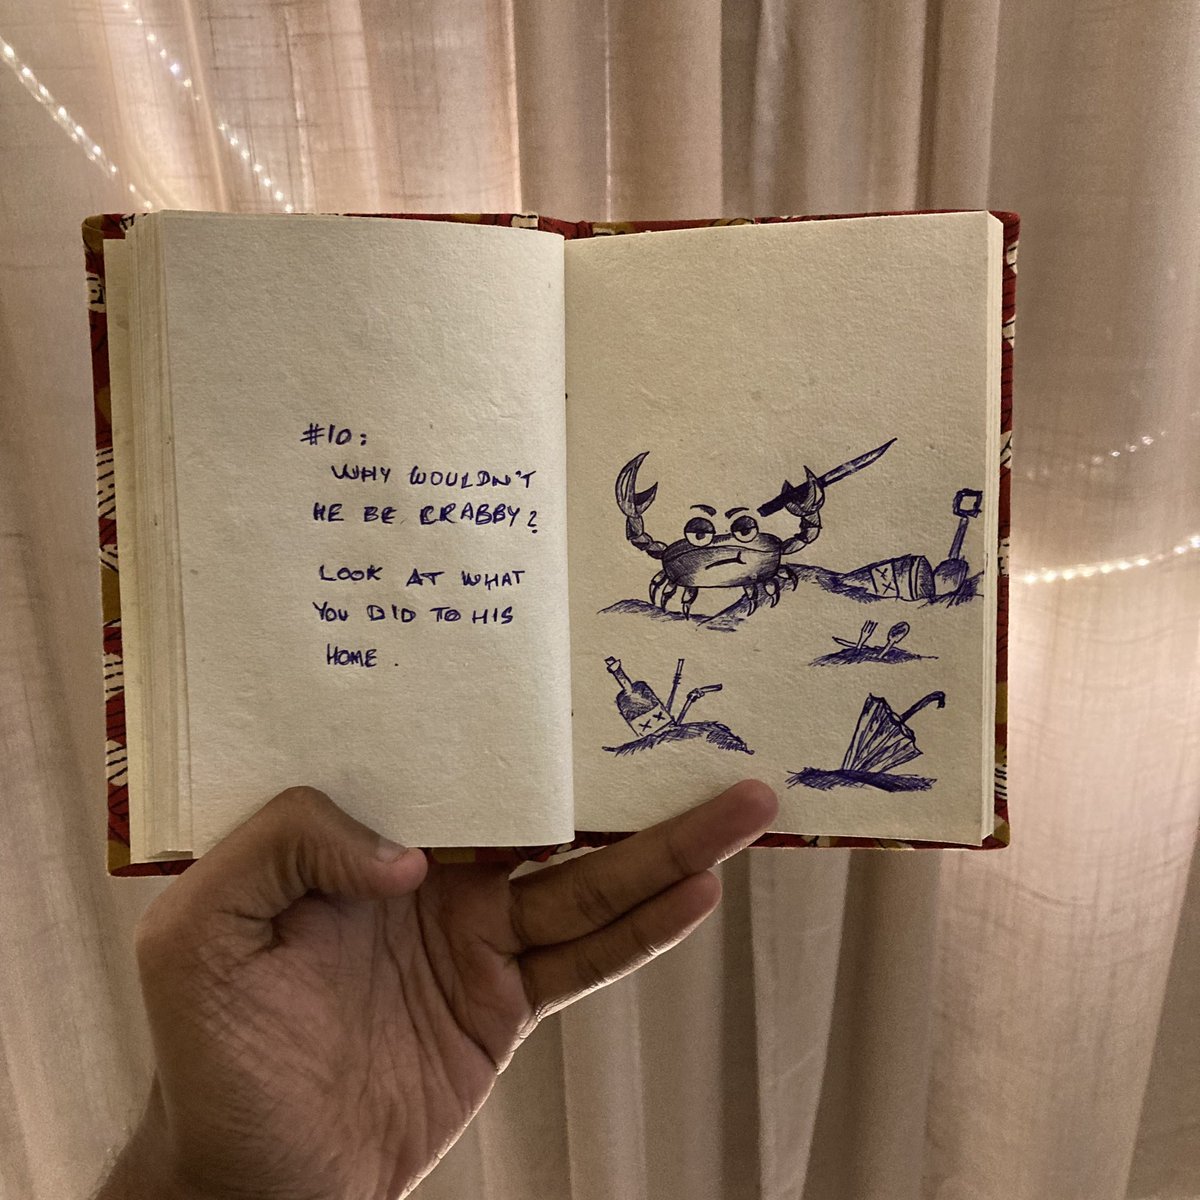 #10:
WHY WOULDN'T
HE BE CRABBY?
LOOK AT WHAT
YOU DID TO HIS
HOME.